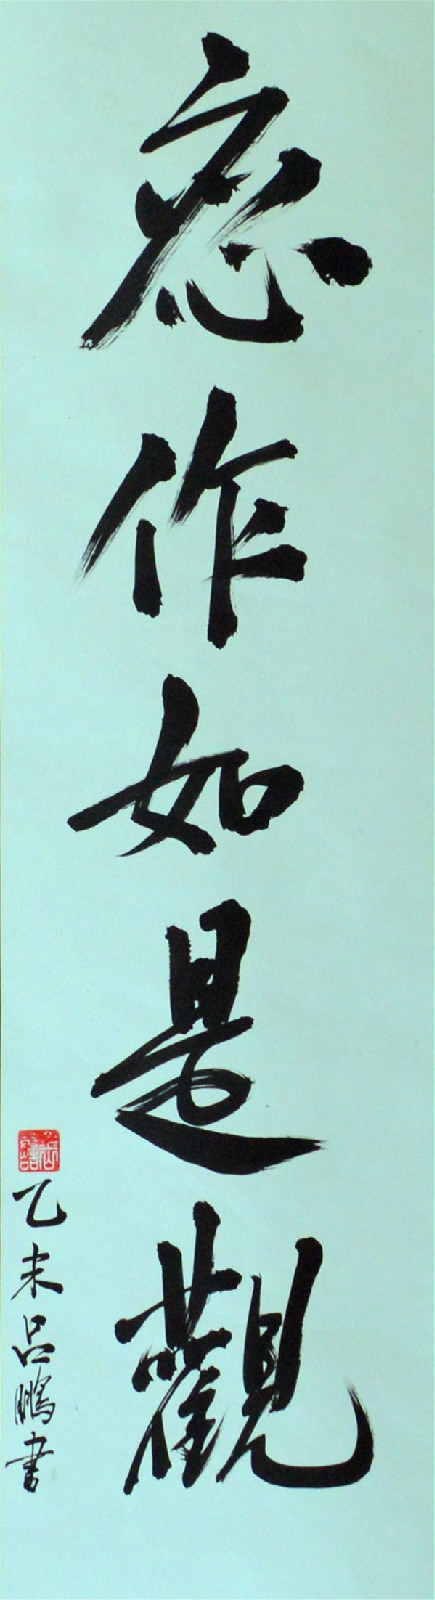 應作如是觀
乙未呂鵬書